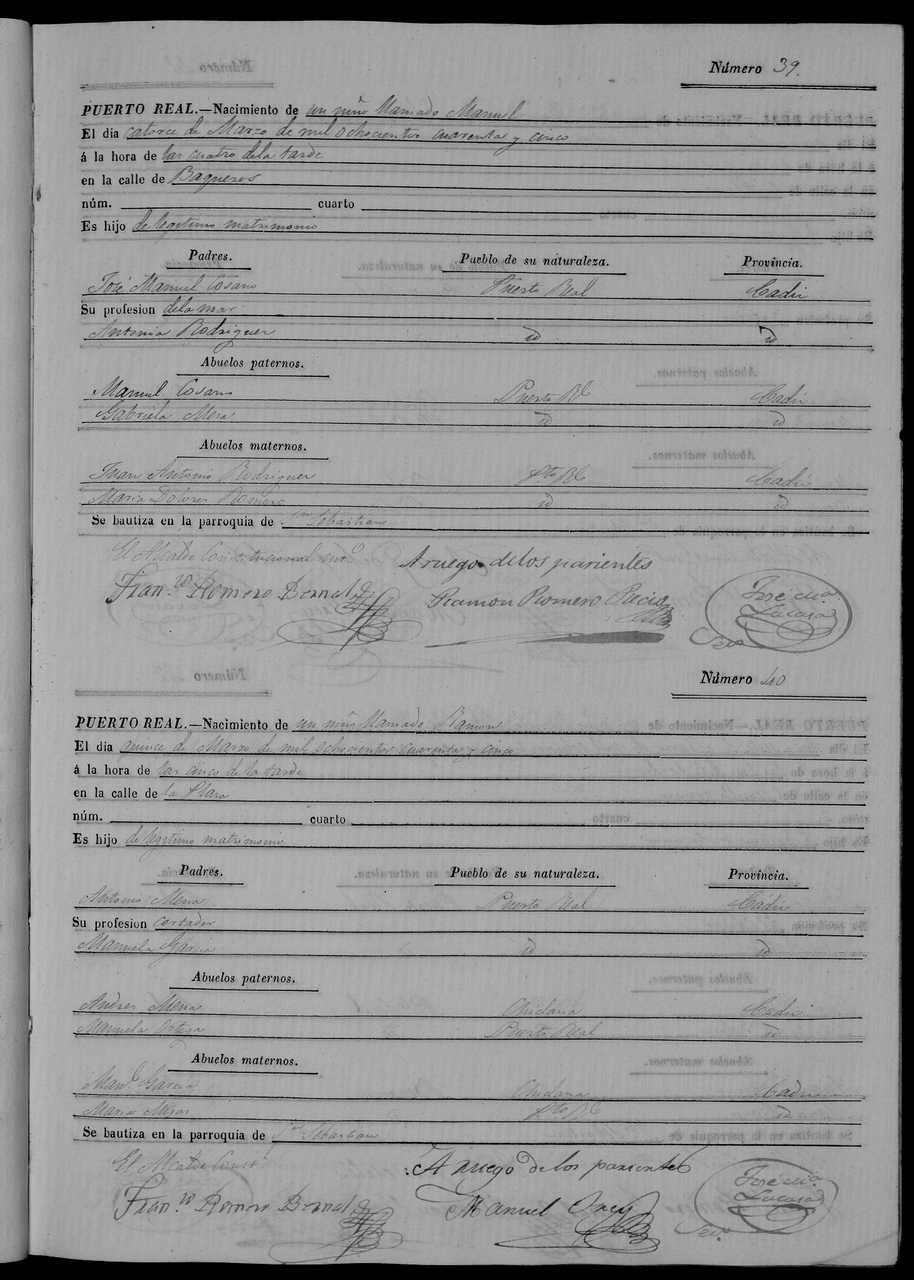 Número 39.
PUERTO REAL.—Nacimiento de un niño llamado Manuel
El dia catorce de Marzo de mil ochocientos cuarenta y cinco
á la hora de las cuatro dela tarde
en la calle de Baqueros
núm. cuarto
Es hijo de legitimo matrimonio
Padres. Pueblo de su naturaleza. Provincia.
José Manuel Cosano Puerto Real Cadiz
Su profesion dela mar
Antonia Rodriguez id id
Abuelos paternos.
Manuel Cosano Puerto Rl Cadiz
Gabriela Mera id id
Abuelos maternos.
Juan Antonio Rodriguez Pto Rl Cadiz
Maria Dolores Romero id id
Se bautiza en la parroquia de Sn Sebastian
El Alcalde Constitucional A ruego de los parientes
Franco Romero Bernal Ramon Romero José Ma
Lacasa
Srio
Número 40
PUERTO REAL.—Nacimiento de un niño llamado Ramon
El dia quince de Marzo de mil ochocientos cuarenta y cinco
á la hora de las cinco de la tarde
en la calle de la Plaza
núm. cuarto
Es hijo de legitimo matrimonio
Padres. Pueblo de su naturaleza. Provincia.
Antonio Mena Puerto Real Cadiz
Su profesion cortador
Manuela Garcia id id
Abuelos paternos.
Andres Mena Chiclana Cadiz
Manuela Ortega Puerto Real id
Abuelos maternos.
Manl Garcia Chiclana Cadiz
Maria Pto Rl id
Se bautiza en la parroquia de Sn Sebastian
El Alcalde Const A ruego de los parientes
Franco Romero Bernal Manuel José Ma
Lacasa
Srio